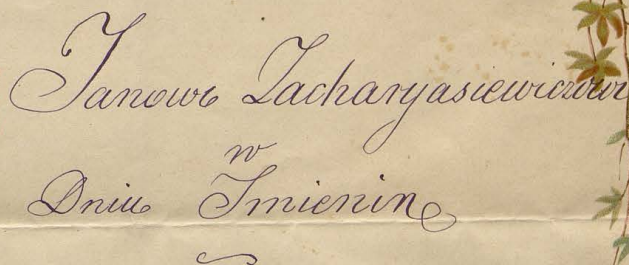 Janowi Zacharyasiewiczowi
w
Dniu Imienin